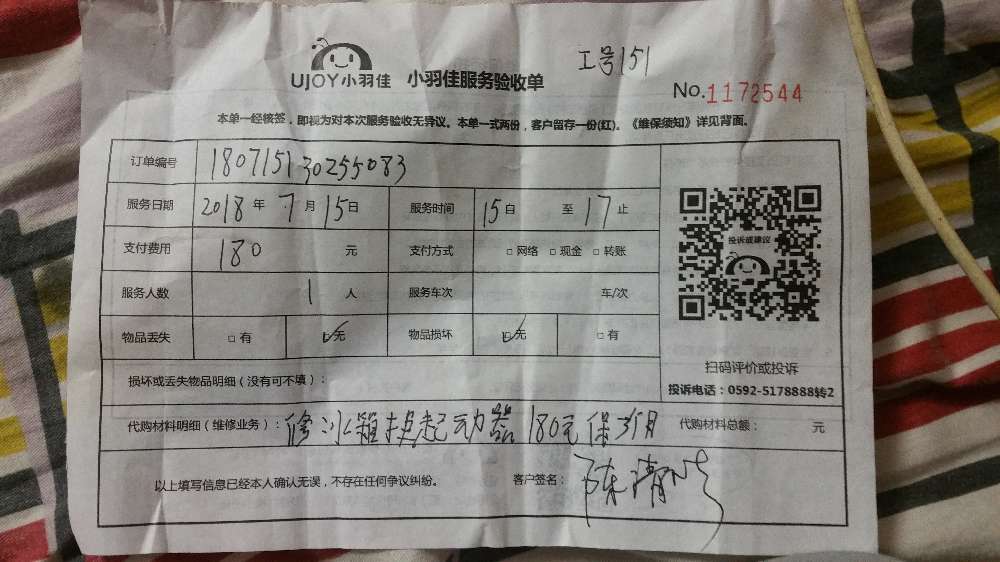 工号151
UJOY小羽佳 小羽佳服务验收单
No.1172544
本单一经核签,即视为对本次服务验收无异议。本单一式两份,客户留存一份(红)。《维保须知》详见背面。
订单编号 180715130255083
服务日期 2018年7月15日 服务时间 15自 至 17止
支付费用 180 元 支付方式 □网络 □现金 □转账
投诉或建议
服务人数 1人 服务车次 车/次
物品丢失 □有 ☑无 物品损坏 ☑无 □有
扫码评价或投诉
损坏或丢失物品明细(没有可不填):
投诉电话:0592-5178888转2
代购材料明细(维修业务):修冰箱换起动器 180元保3个月 代购材料总额: 元
以上填写信息已经本人确认无误,不存在任何争议纠纷。 客户签名:陈清